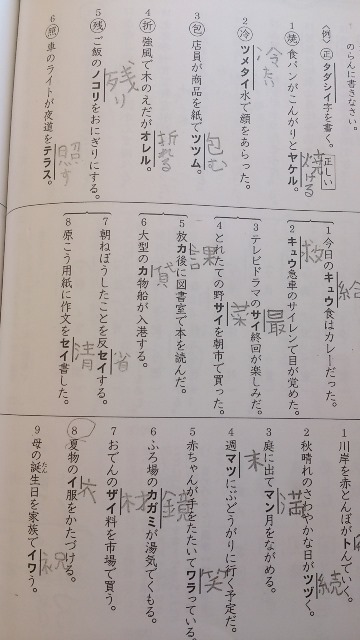 のらんに書きなさい。
〈例〉 正 タダシイ字を書く。 正しい
1 焼 食パンがこんがりとヤケル。 焼ける
2 冷 ツメタイ水で顔をあらった。 冷たい
3 包 店員が商品を紙でツツム。 包む
4 折 強風で木のえだがオレル。 折れる
5 残 ご飯のノコリをおにぎりにする。 残り
6 照 車のライトが夜道をテラス。 照す
1 今日のキュウ食はカレーだった。 給
2 キュウ急車のサイレンで目が覚めた。 救
3 テレビドラマのサイ終回が楽しみだ。 最
4 とれたての野サイを朝市で買った。 菜
5 放カ後に図書室で本を読んだ。 課
6 大型のカ物船が入港する。 貨
7 朝ねぼうしたことを反セイする。 省
8 原こう用紙に作文をセイ書した。 清
1 川岸を赤とんぼがトんでいく。
2 秋晴れのさわやかな日がツヅく。 続
3 庭に出てマン月をながめる。 満
4 週マツにぶどうがりに行く予定だ。 末
5 赤ちゃんが手をたたいてワラっている。 笑
6 ふろ場のカガミが湯気でくもる。 鏡
7 おでんのザイ料を市場で買う。 材
8 夏物のイ服をかたづける。 衣
9 母の誕生日を家族でイワう。 祝